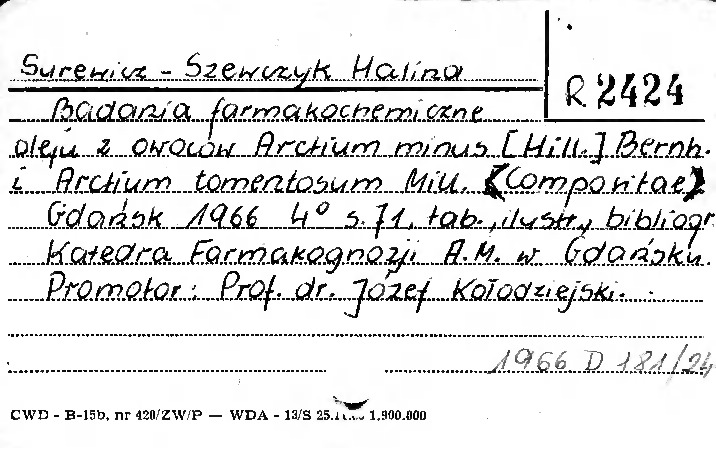 Surewicz - Szewczyk Halina
R 2424
Badania farmakochemiczne
oleju z owoców Arctium minus [Hill.] Bernh.
i Arctium tomentosum Mill. (Compositae)
Gdańsk 1966 4° s. 71, tab., ilustr., bibliogr
Katedra Farmakognozji A.M. w Gdańsku.
Promotor: Prof. dr. Józef Kołodziejski.
1966 D 181/24
CWD - B-15b, nr 420/ZW/P — WDA - 13/S 25. 1.900.000